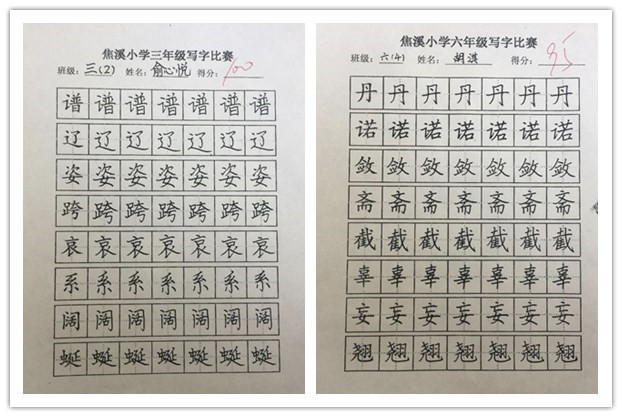 焦溪小学三年级写字比赛
班级：三(2) 姓名：俞心悦 得分：100
谱谱谱谱谱谱谱
辽辽辽辽辽辽辽
姿姿姿姿姿姿姿
跨跨跨跨跨跨跨
哀哀哀哀哀哀哀
系系系系系系系
阔阔阔阔阔阔阔
蜒蜒蜒蜒蜒蜒蜒
焦溪小学六年级写字比赛
班级：六(4) 姓名：胡淇 得分：95
丹丹丹丹丹丹丹
诺诺诺诺诺诺诺
敛敛敛敛敛敛敛
斋斋斋斋斋斋斋
截截截截截截截
辜辜辜辜辜辜辜
妄妄妄妄妄妄妄
翘翘翘翘翘翘翘